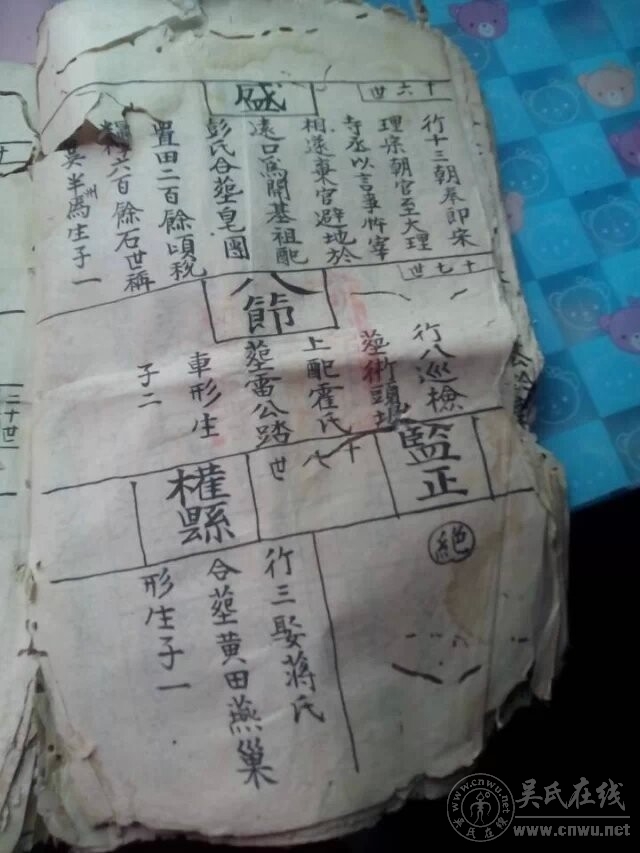 十六世
盛
行十三朝奉即宋
理宗朝官至大理
寺丞以言事忤宰
相遂棄官避地於
遠口爲開基祖配
彭氏合塟皂團
置田二百餘頃税
糧六百餘石世稱
吳半洲焉生子一
十七世
八節
行八巡檢
塟衙頭坳
上配霍氏
塟雷公踏
車形生
子二
監正
絕
十八世
權縣
行三娶蔣氏
合塟黄田燕巢
形生子一
二十世
吴氏在线
www.cnwu.net